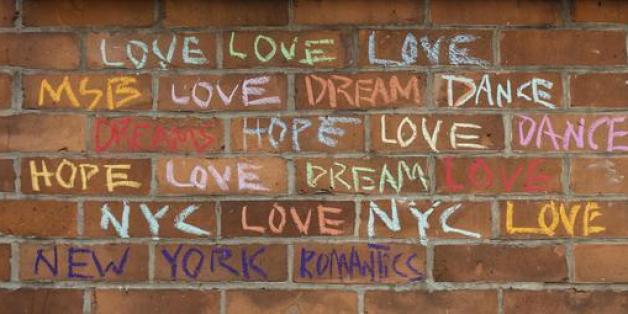 LOVE LOVE LOVE
MSB LOVE DREAM DANCE
DREAMS HOPE LOVE DANCE
HOPE LOVE DREAM LOVE
NYC LOVE NYC LOVE
NEW YORK ROMANTICS